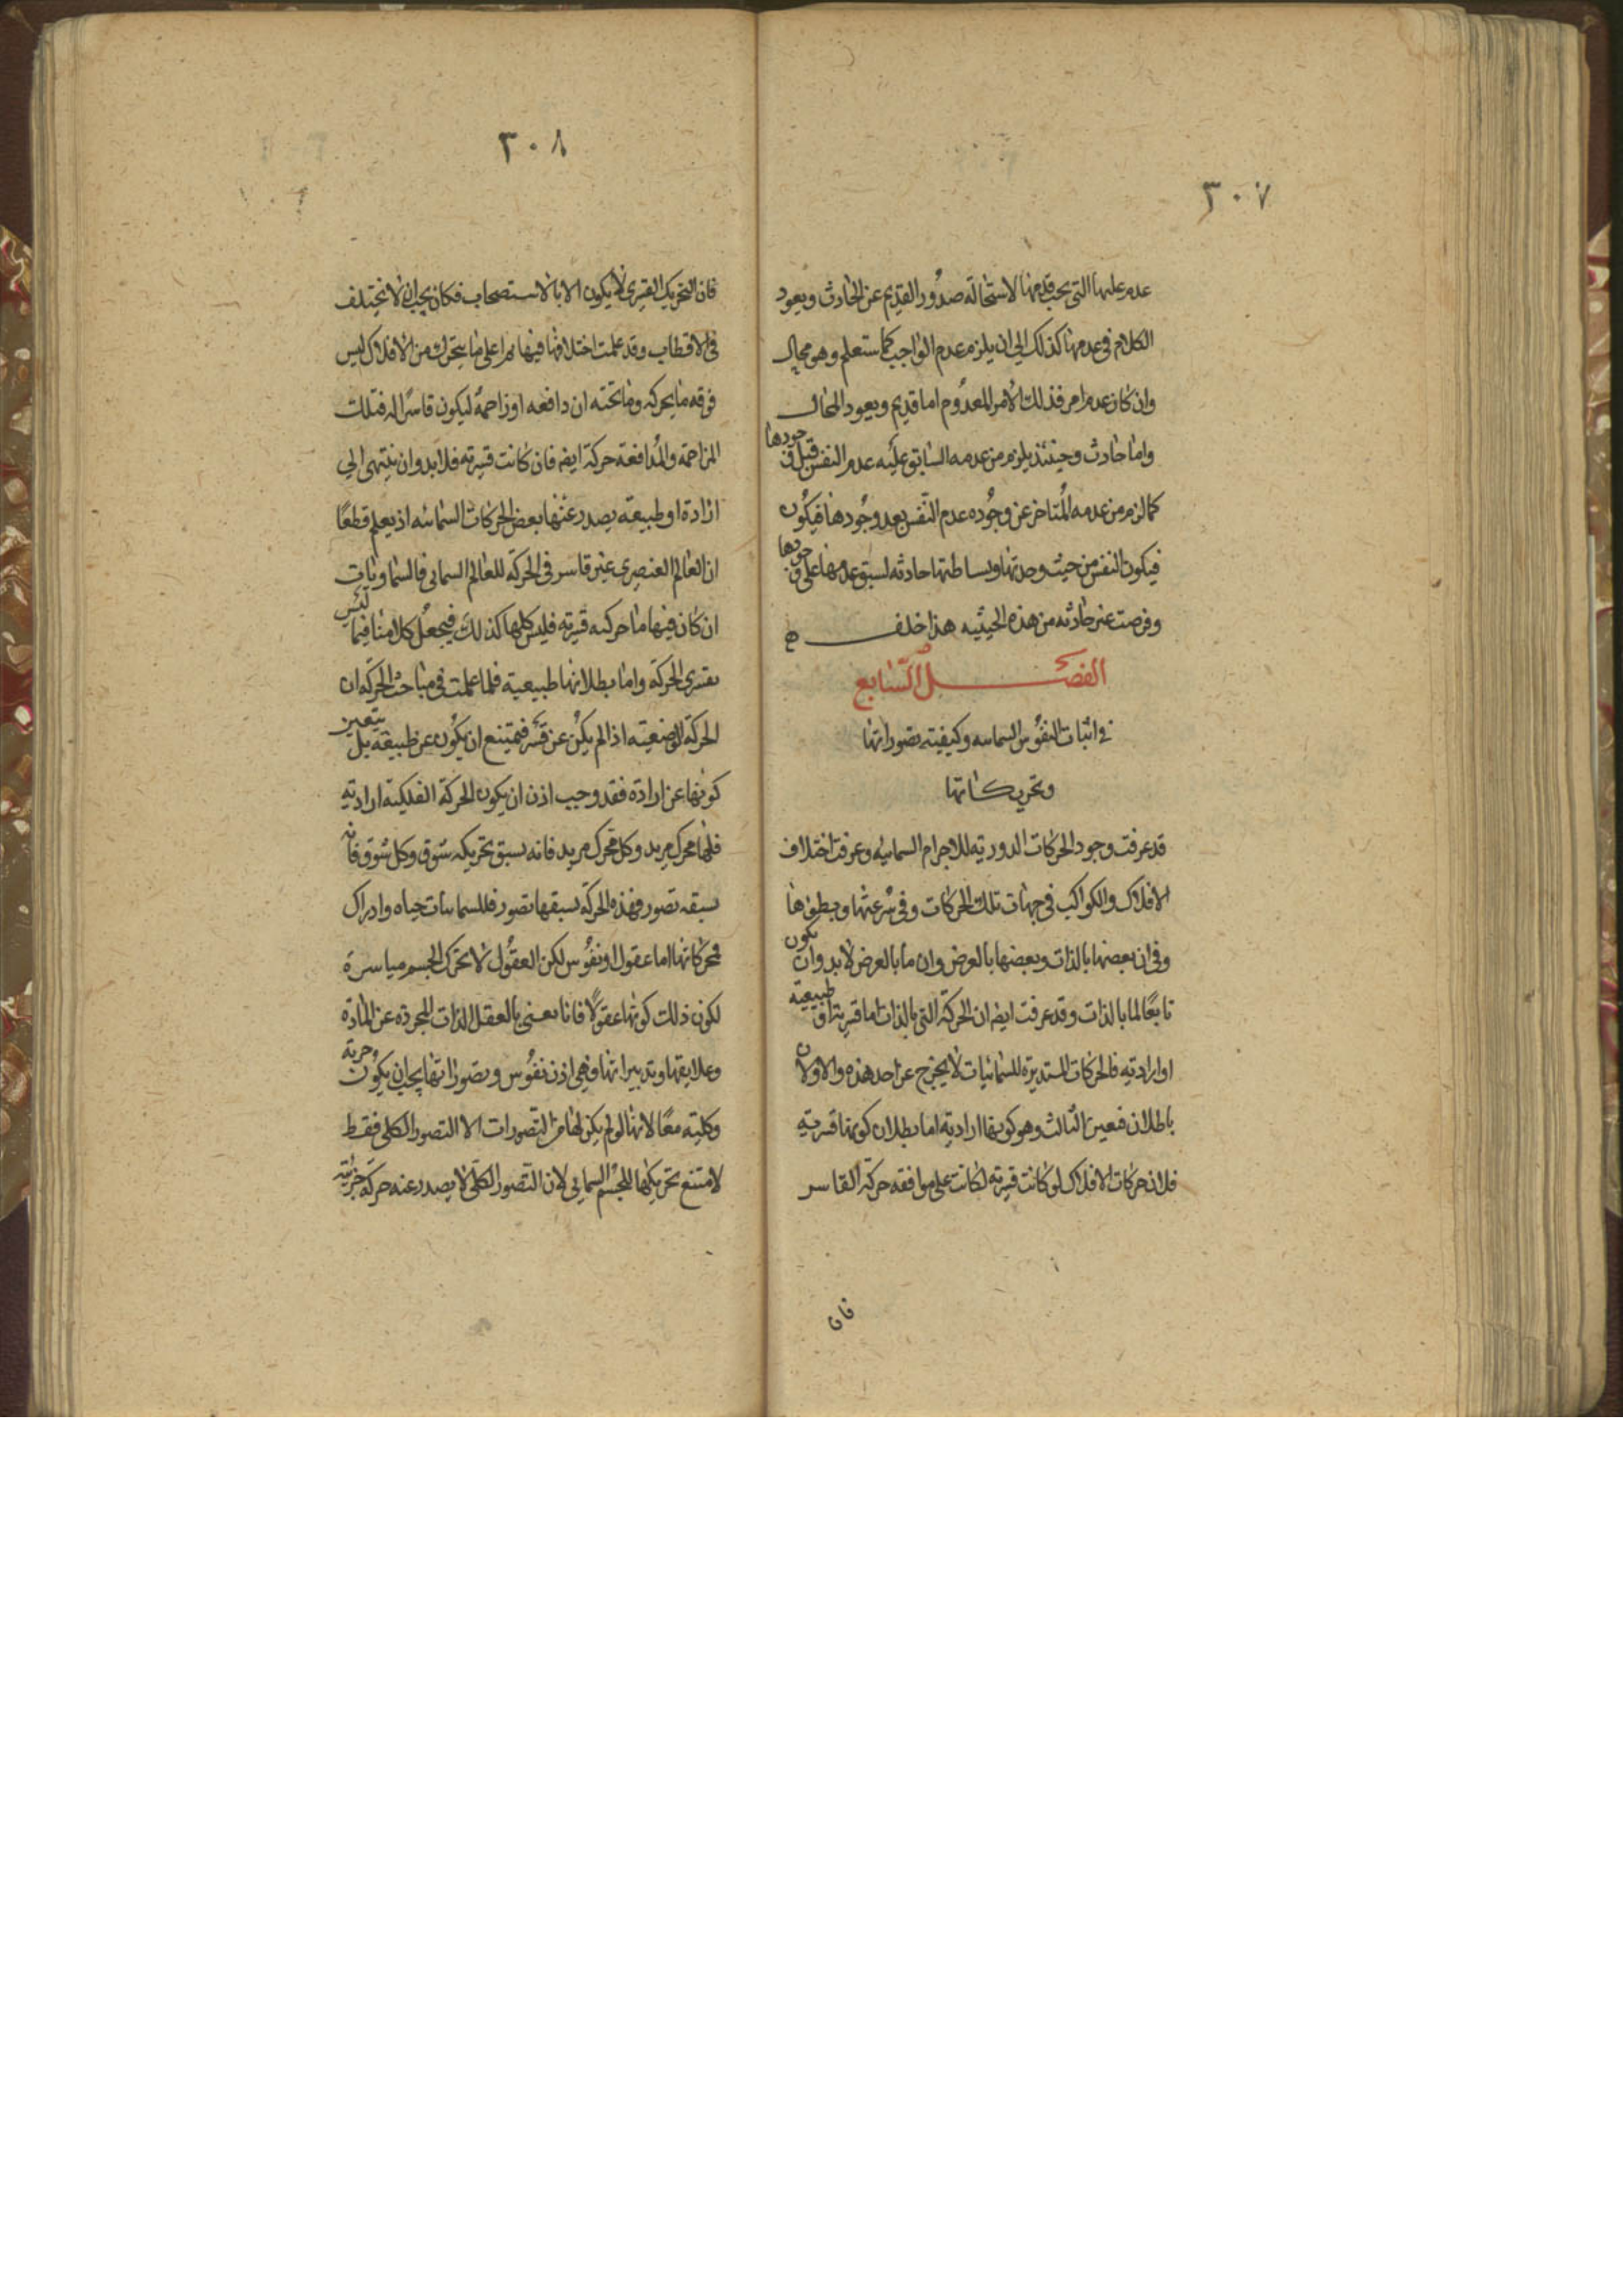 ٣٠٧
عدم علتها التى يجب قدمها لاستحالة صدور القديم عن الحادث ويعود
الكلام فى عدمها كذلك الى ان يلزم عدم الواجب كما ستعلم وهو محال
وان كان عدم امر فذلك الامر المعدوم اما قديم ويعود المحال
واما حادث وحينئذ يلزم من عدمه السابق عليه عدم النفس قبل وجودها
كما لزم من عدمه المتاخر عن وجوده عدم النفس بعد وجودها فيكون
فيكون النفس من حيث وحدتها وبساطتها حادثه لسبق عدمها على وجودها
وفرضت غير حادثه من هذه الحيثيه هذا خلف
الفصل السابع
فى اثبات النفوس السمائيه وكيفيته تصوراتها
وتحريكاتها
قد عرفت وجود الحركات الدوريه للاجرام السمائيه وعرفت اختلاف
الافلاك والكواكب فى جهات تلك الحركات وفى سرعتها وبطؤها
وفى ان بعضها بالذات وبعضها بالعرض وان ما بالعرض لا بد وان يكون
تابعًا لما بالذات وقد عرفت ايضا ان الحركة التى بالذات اما قسرية او طبيعية
او اراديه فالحركات المستديرة للسمائيات لا يخرج عن احد هذه والاولان
باطلان فتعين الثالث وهو كونها اراديه اما بطلان كونها قسريه
فلان حركات الافلاك لو كانت قسريه لكانت على موافقه حركة القاسر
فان
٣٠٨
فان التحريك القسرى لا يكون الا بالاستصحاب فكان يجب ان لا يختلف
فى الاقطاب وقد علمت اختلافها فيها على ما يتحرك من الافلاك ليس
فوقه ما يحركه وما تحته ان دافعه او زاحمه ليكون قاسرًا له فتلك
المزاحمة والمدافعة حركة ايضا فان كانت قسريه فلا بد وان ينتهى الى
ارادة او طبيعه يصدر عنها بعض الحركات السمائيه اذ يعلم قطعًا
ان العالم العنصرى غير قاسر فى الحركة للعالم السمائى فالسماويات
ان كان فيها ما حركته قسريه فليس كلها كذلك فيجعل كلامنا فيما ليس
بقسرى الحركة واما بطلانها طبيعية فلما علمت فى مباحث الحركة ان
الحركة الوضعيه اذا لم يكن عن قسر فيمتنع ان يكون عن طبيعة بل يتعين
كونها عن ارادة فقد وجب اذن ان يكون الحركة الفلكية اراديه
فلها محرك مريد وكل محرك مريد فانه يسبق تحريكه شوق وكل شوق فانه
يسبقه تصور فهذه الحركة يسبقها تصور فللسمائيات حياه وادراك
محركاتها اما عقول او نفوس لكن العقول لا تحرك الجسم مباشرة
لكون ذلك كونها عقولًا فانا نعنى بالعقل الذات المجرده عن المادة
وعلايقها وتدبيراتها فهى اذن نفوس وتصوراتها يجب ان يكون جزيه
وكليه معًا لانها لو لم يكن لها من التصورات الا التصور الكلى فقط
لامتنع تحريكها للجسم السمائى لان التصور الكلى لا يصدر عنه حركة جزئيه